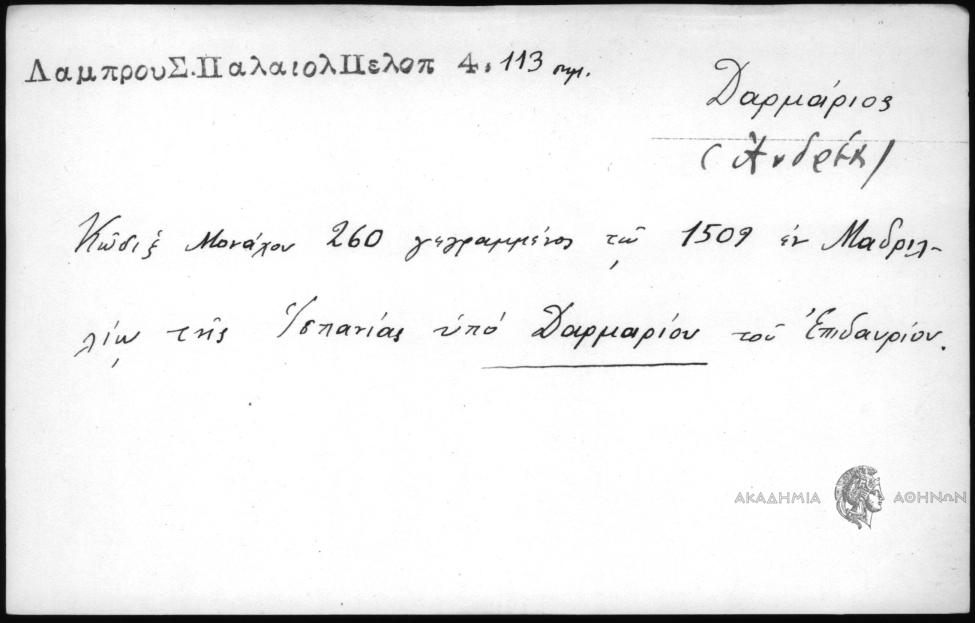 ΛαμπρουΣ.ΠαλαιολΠελοπ 4. 113 σημ.
Δαρμάριος
(Ἀνδρέας)
Κῶδιξ Μονάχου 260 γεγραμμένος τῷ 1509 ἐν Μαδριλ-
λίῳ τῆς Ἱσπανίας ὑπὸ Δαρμαρίου τοῦ Ἐπιδαυρίου.
ΑΚΑΔΗΜΙΑ ΑΘΗΝΩΝ